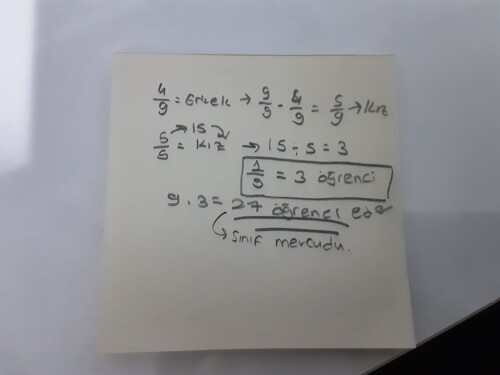 4/9 = Erkek → 9/9 - 4/9 = 5/9 → Kız
15
5/5 = Kız → 15 ÷ 5 = 3
1/5 = 3 öğrenci
9 . 3 = 27 öğrenci eder
→ Sınıf mevcudu.